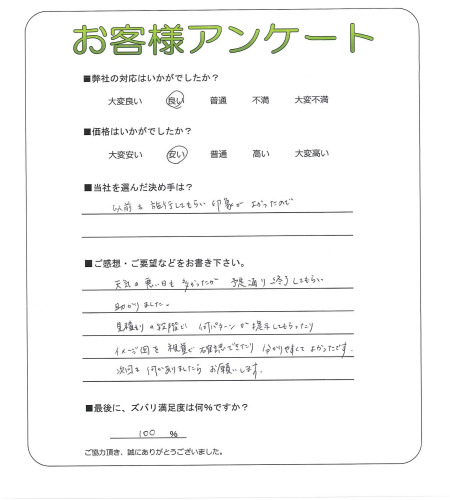 お客様アンケート
■弊社の対応はいかがでしたか？
大変良い 良い 普通 不満 大変不満
■価格はいかがでしたか？
大変安い 安い 普通 高い 大変高い
■当社を選んだ決め手は？
以前も施行してもらい印象がよかったので
■ご感想・ご要望などをお書き下さい。
天気の悪い日も多かったが 予定通り終了してもらい
助かりました。
見積もりの段階で 何パターンか提示してもらったり
イメージ図を視覚で確認できたり 分かりやすくてよかったです。
次回も何かありましたら お願いします。
■最後に、ズバリ満足度は何%ですか？
100 %
ご協力頂き、誠にありがとうございました。